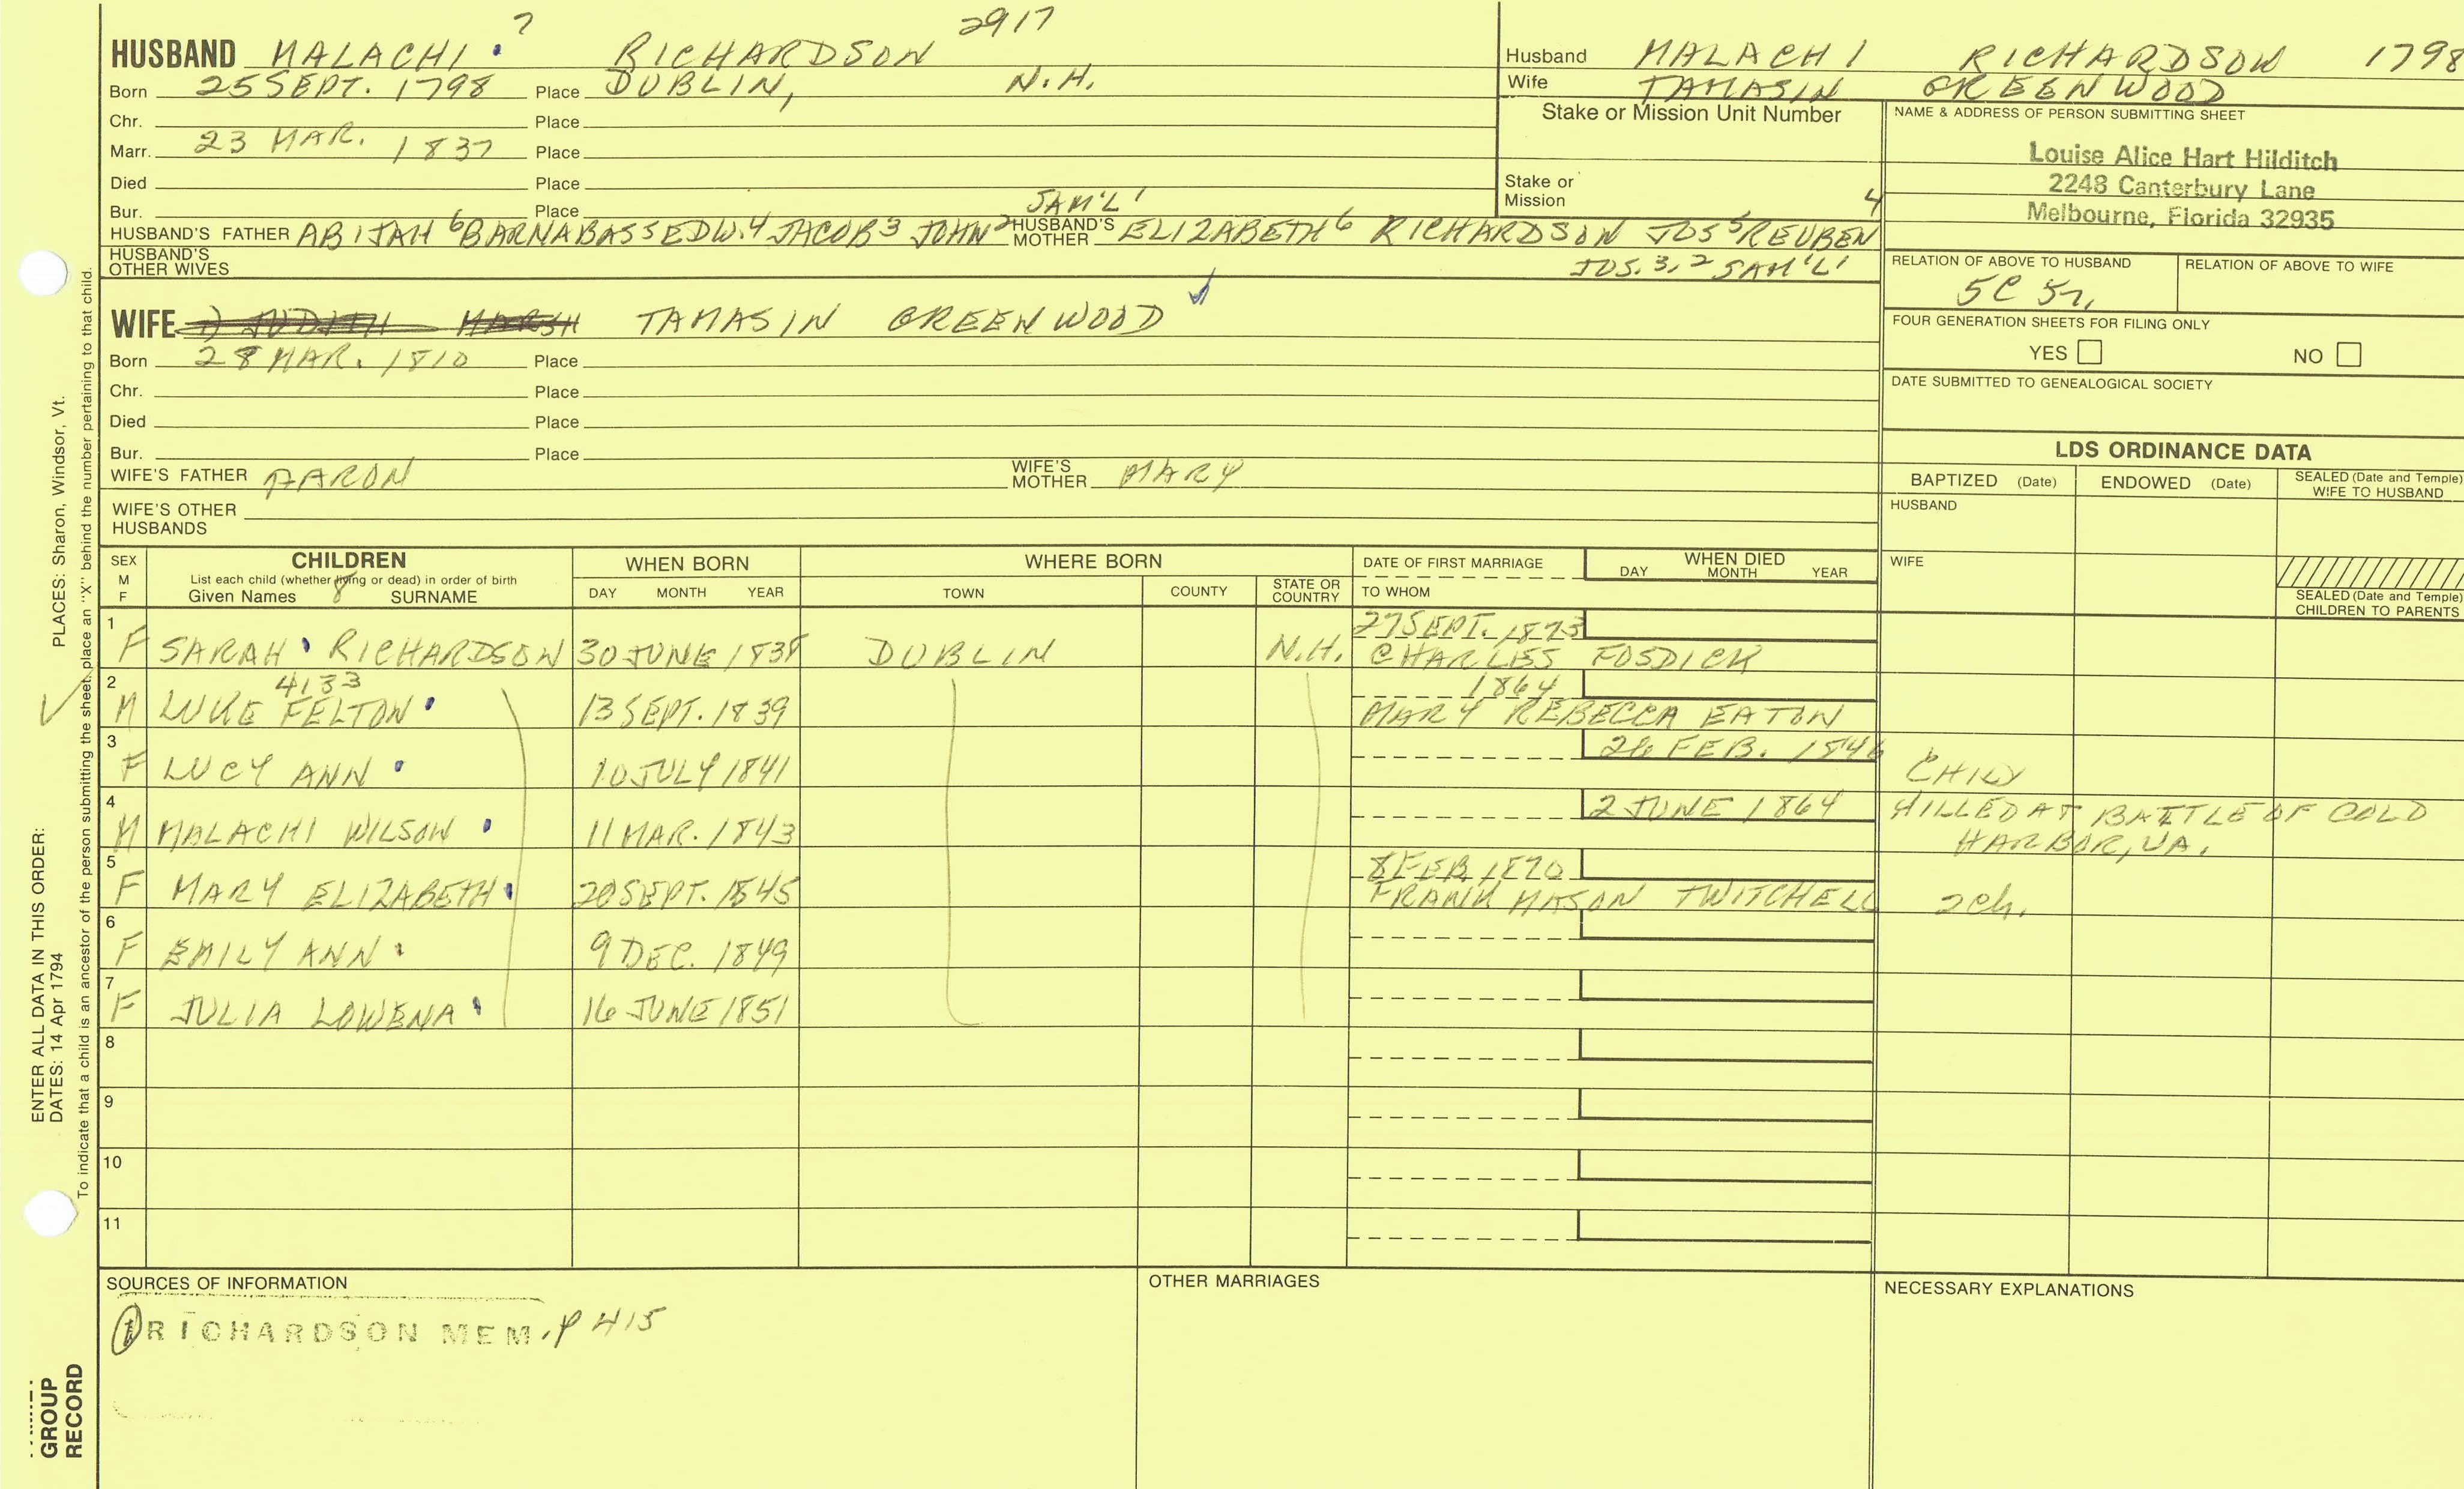 7 2917
HUSBAND MALACHI RICHARDSON
Born 25 SEPT. 1798 Place DUBLIN, N.H.
Chr. Place
Marr. 23 MAR. 1837 Place
Died Place
Bur. Place
SAM'L 1
HUSBAND'S FATHER ABIJAH 6 BARNABAS 5 EDW. 4 JACOB 3 JOHN 2 HUSBAND'S MOTHER ELIZABETH 6 RICHARDSON JOS 5 REUBEN 4
HUSBAND'S OTHER WIVES JOS. 3, 2 SAM'L 1
Husband MALACHI RICHARDSON 1798
Wife TAMASIN GREENWOOD
Stake or Mission Unit Number
Stake or
Mission
NAME & ADDRESS OF PERSON SUBMITTING SHEET
Louise Alice Hart Hilditch
2248 Canterbury Lane
Melbourne, Florida 32935
RELATION OF ABOVE TO HUSBAND RELATION OF ABOVE TO WIFE
5C 5r,
FOUR GENERATION SHEETS FOR FILING ONLY
YES NO
DATE SUBMITTED TO GENEALOGICAL SOCIETY
WIFE 1) JUDITH MARSH TAMASIN GREENWOOD
Born 28 MAR. 1810 Place
Chr. Place
Died Place
Bur. Place
WIFE'S FATHER AARON WIFE'S MOTHER MARY
WIFE'S OTHER
HUSBANDS
LDS ORDINANCE DATA
BAPTIZED (Date) ENDOWED (Date) SEALED (Date and Temple) WIFE TO HUSBAND
HUSBAND
WIFE
SEALED (Date and Temple)
CHILDREN TO PARENTS
SEX M F
CHILDREN
List each child (whether living or dead) in order of birth
Given Names 8 SURNAME
WHEN BORN
DAY MONTH YEAR
WHERE BORN
TOWN COUNTY STATE OR COUNTRY
DATE OF FIRST MARRIAGE
TO WHOM
WHEN DIED
DAY MONTH YEAR
1 27 SEPT. 1873
F SARAH RICHARDSON 30 JUNE 1838 DUBLIN N.H. CHARLES FOSDICK
2 4133 1864
M LUKE FELTON 13 SEPT. 1839 MARY REBECCA EATON
3 26 FEB. 1846
F LUCY ANN 10 JULY 1841 CHILD
4 2 JUNE 1864 KILLED AT BATTLE OF COLD
M MALACHI WILSON 11 MAR. 1843 HARBOR, VA.
5 8 FEB 1870
F MARY ELIZABETH 20 SEPT. 1845 FRANK MASON TWITCHELL 2 ch.
6
F EMILY ANN 9 DEC. 1849
7
F JULIA LOWENA 16 JUNE 1851
8
9
10
11
SOURCES OF INFORMATION OTHER MARRIAGES NECESSARY EXPLANATIONS
1 RICHARDSON MEM. P 415
ENTER ALL DATA IN THIS ORDER:
DATES: 14 Apr 1794 PLACES: Sharon, Windsor, Vt.
To indicate that a child is an ancestor of the person submitting the sheet, place an "X" behind the number pertaining to that child.
GROUP
RECORD